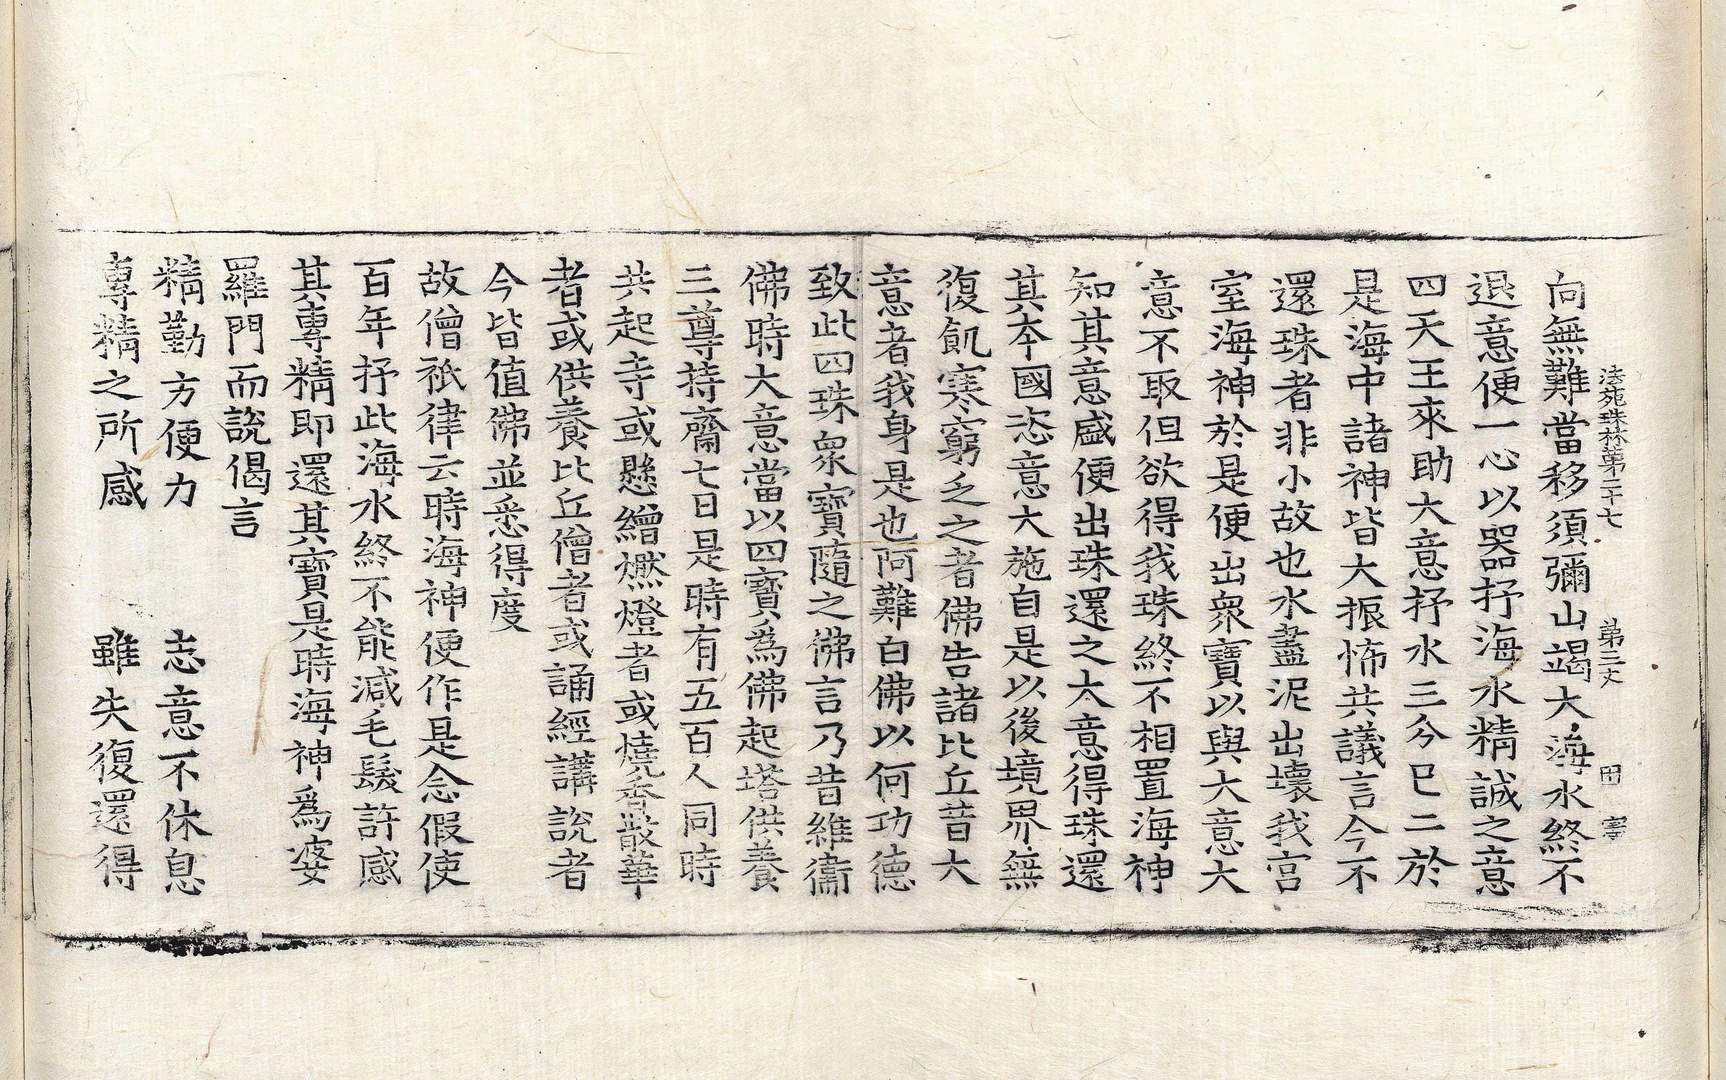 法苑珠林第二十七　第三丈　冊　寧
向無難當移須彌山竭大海水終不
退意便一心以器抒海水精誠之意
四天王來助大意抒水三分已二於
是海中諸神皆大振怖共議言今不
還珠者非小故也水盡泥出壞我宮
室海神於是便出衆寶以與大意大
意不取但欲得我珠終不相置海神
知其意盛便出珠還之大意得珠還
其本國恣意大施自是以後境界無
復飢寒窮乏之者佛告諸比丘昔大
意者我身是也阿難白佛以何功德
致此四珠衆寶隨之佛言乃昔維衞
佛時大意當以四寶爲佛起塔供養
三尊持齋七日是時有五百人同時
共起寺或懸繒燃燈者或燒香散華
者或供養比丘僧者或誦經講說者
今皆值佛並悉得度
故僧祇律云時海神便作是念假使
百年抒此海水終不能減毛髮許感
其專精即還其寶是時海神爲婆
羅門而說偈言
精勤方便力　志意不休息
專精之所感　雖失復還得